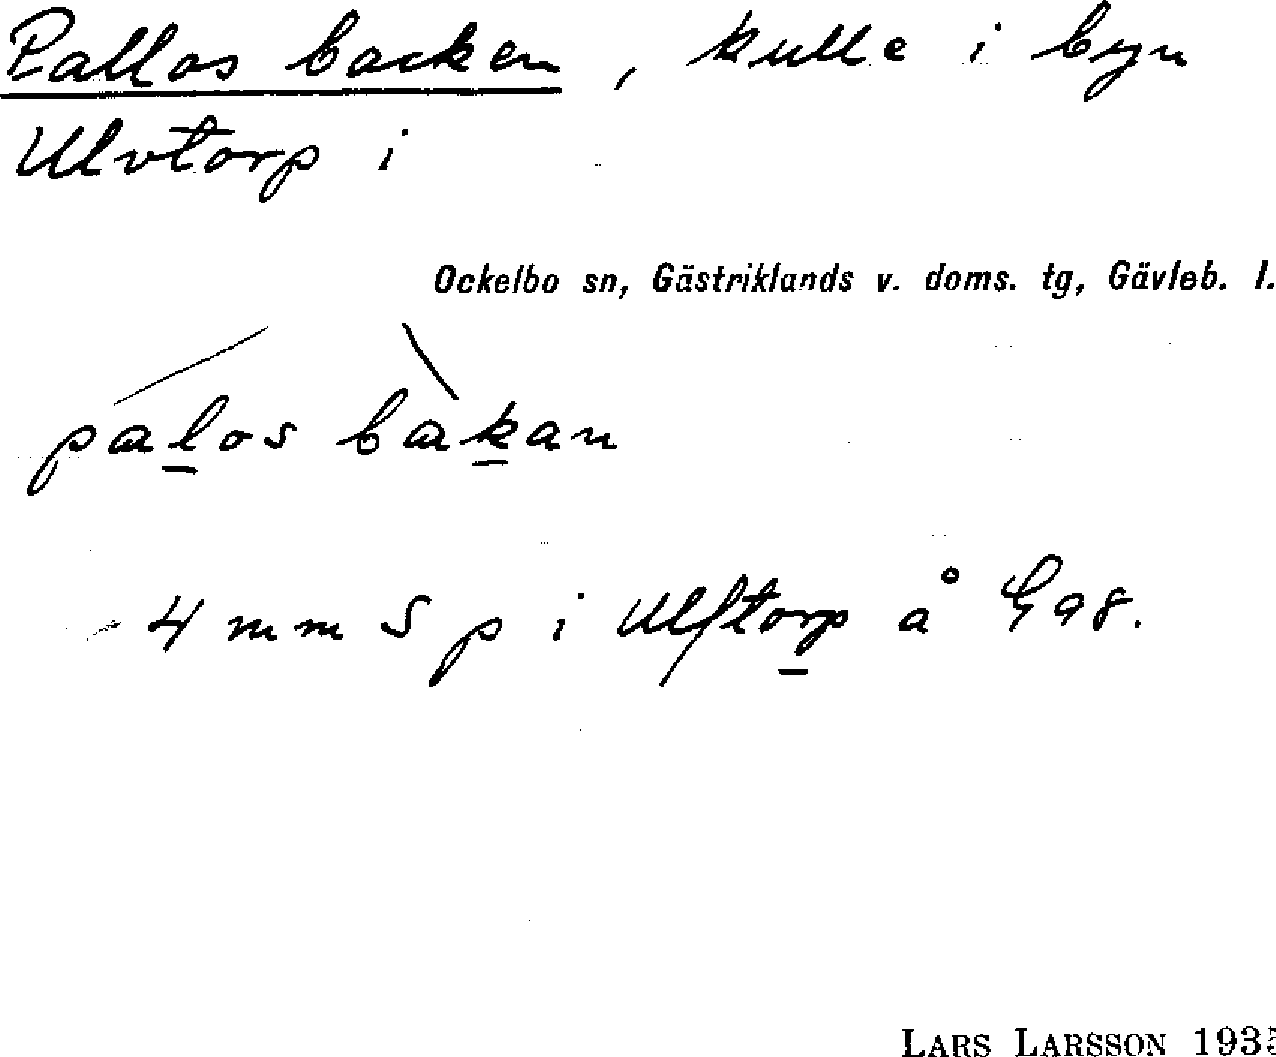 Pallos backen, kulle i byn
Ulvtorp i
Ockelbo sn, Gästriklands v. doms. tg, Gävleb. l.
palos bakan
4 mm S p i Ulftorp å G98.
LARS LARSSON 193